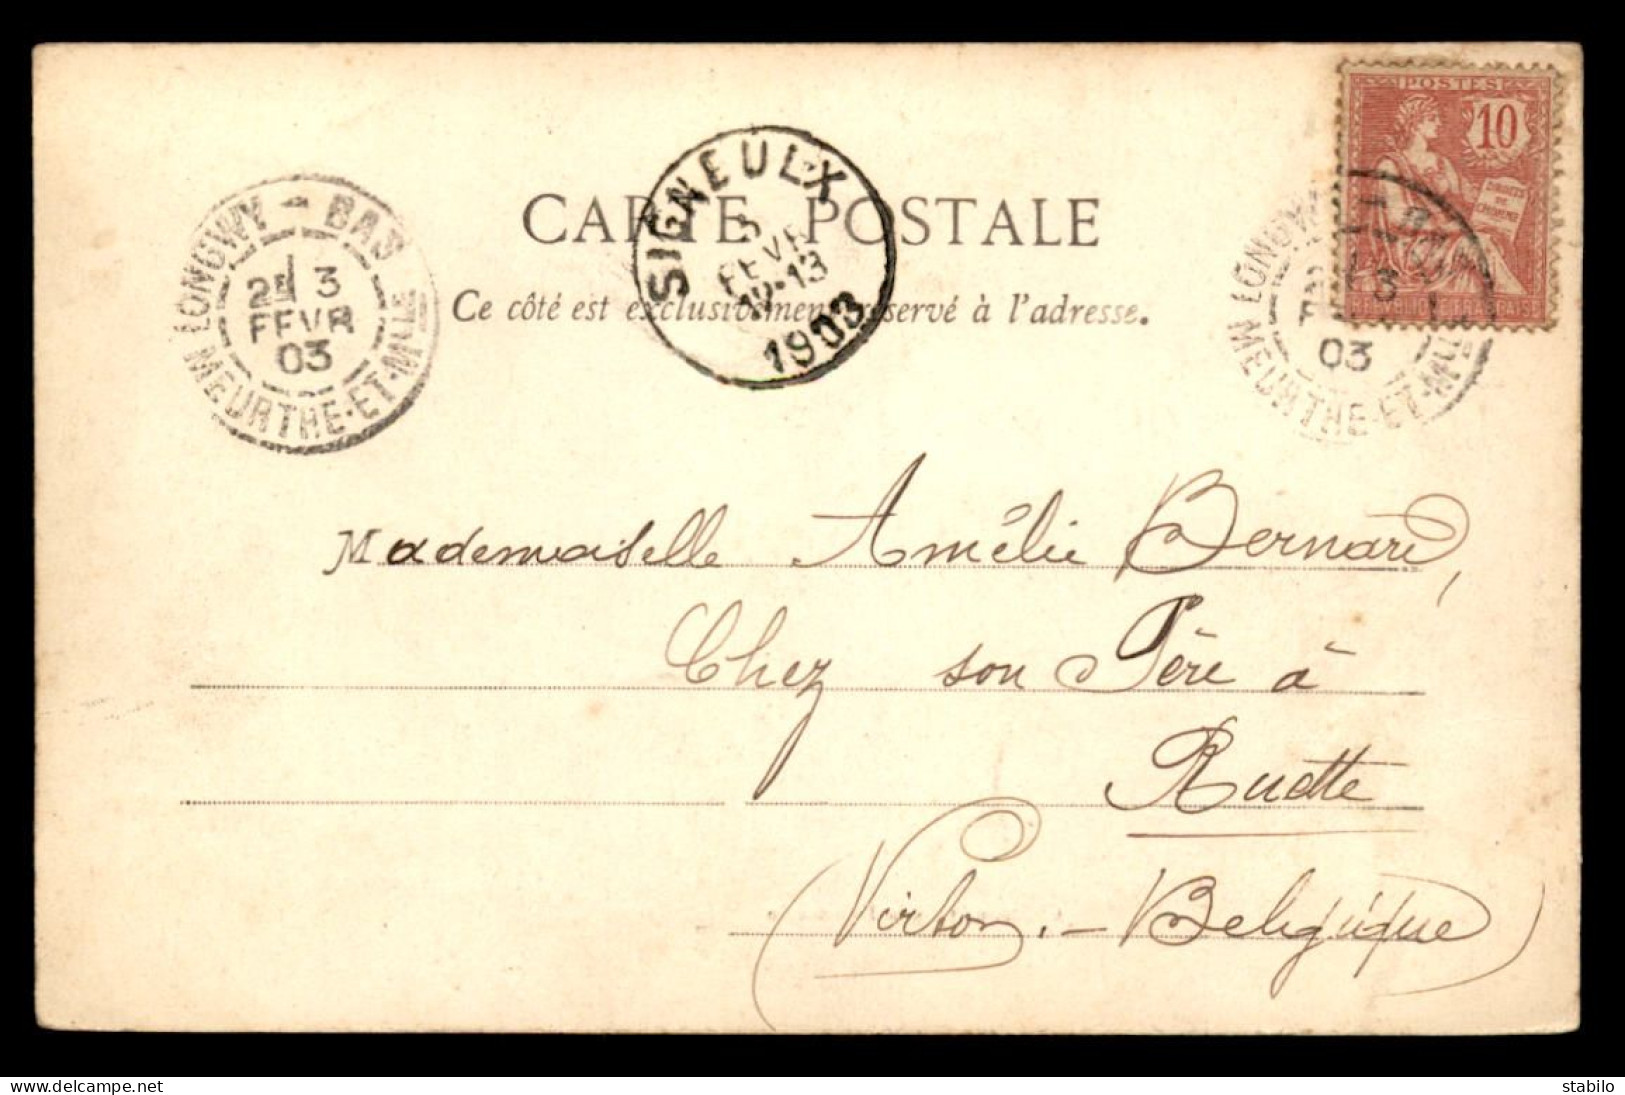 POSTES
10
DROITS DE L'HOMME
LONGWY - BAS
2E 3
FEVR
03
MEURTHE-ET-MLLE
SIGNEULX
3
FEVR
12-13
1903
LONGWY - BAS
3
03
MEURTHE-ET-MLLE
CARTE POSTALE
Ce côté est exclusivement réservé à l'adresse.
Mademoiselle Amélie Bernard,
Chez son Père à
Ruette
(Virton. - Belgique)
delcampe.net
stabilo